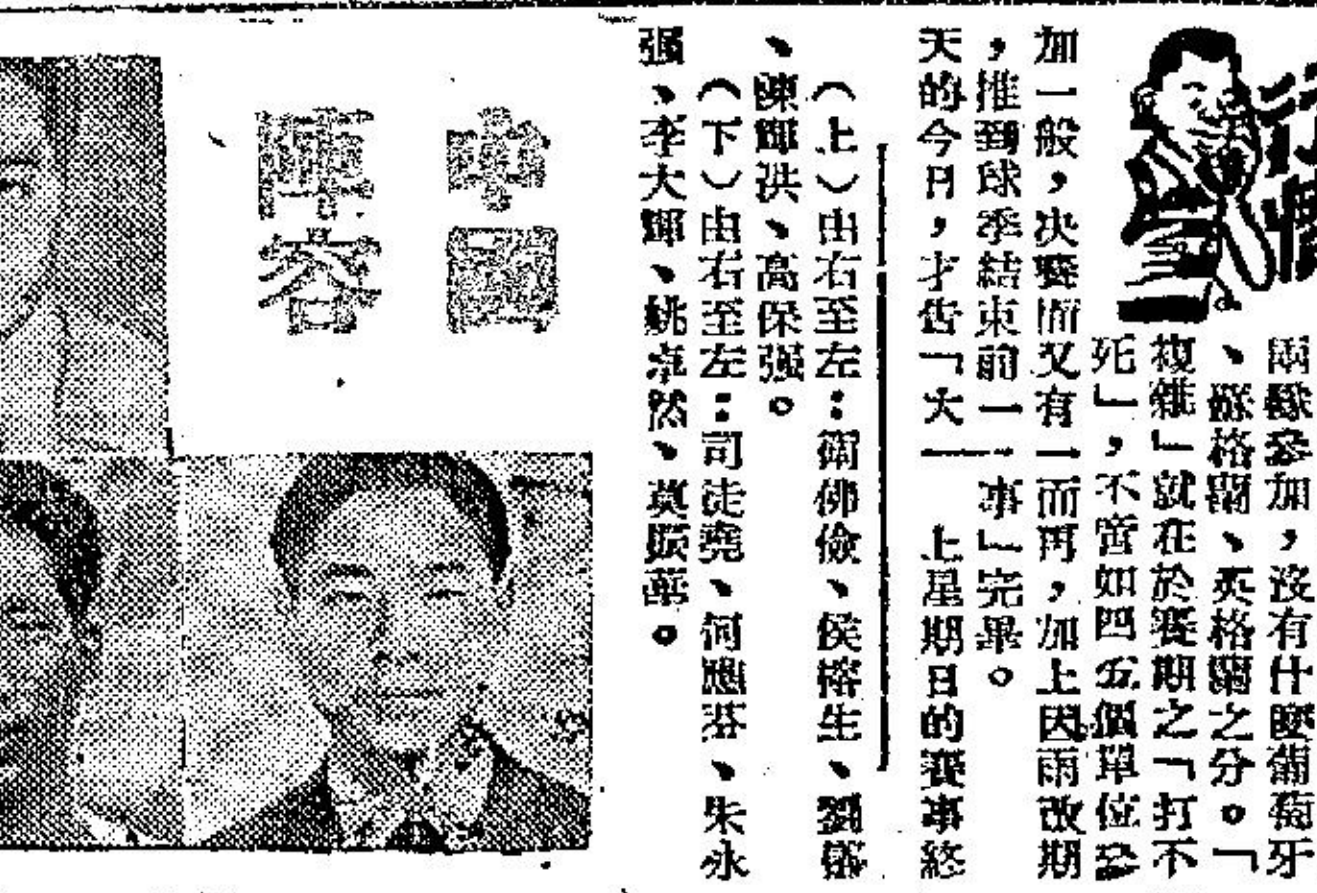 兩隊參加，沒有什麼葡萄牙
、蘇格蘭、英格蘭之分。「
複雜」就在於賽期之「打不
死」，不管如四五個單位參
加一般，決賽而又有一而再，加上因雨改期
，推到球季結束前一事」完畢。
天的今日，才告「大一　上星期日的賽事終
（上）由右至左：衛佛儉、侯榕生、劉儀
、陳輝洪、高保强。
（下）由右至左：司徒堯、何應芬、朱永
强、李大輝、姚卓然、莫振華。
中國
陣容